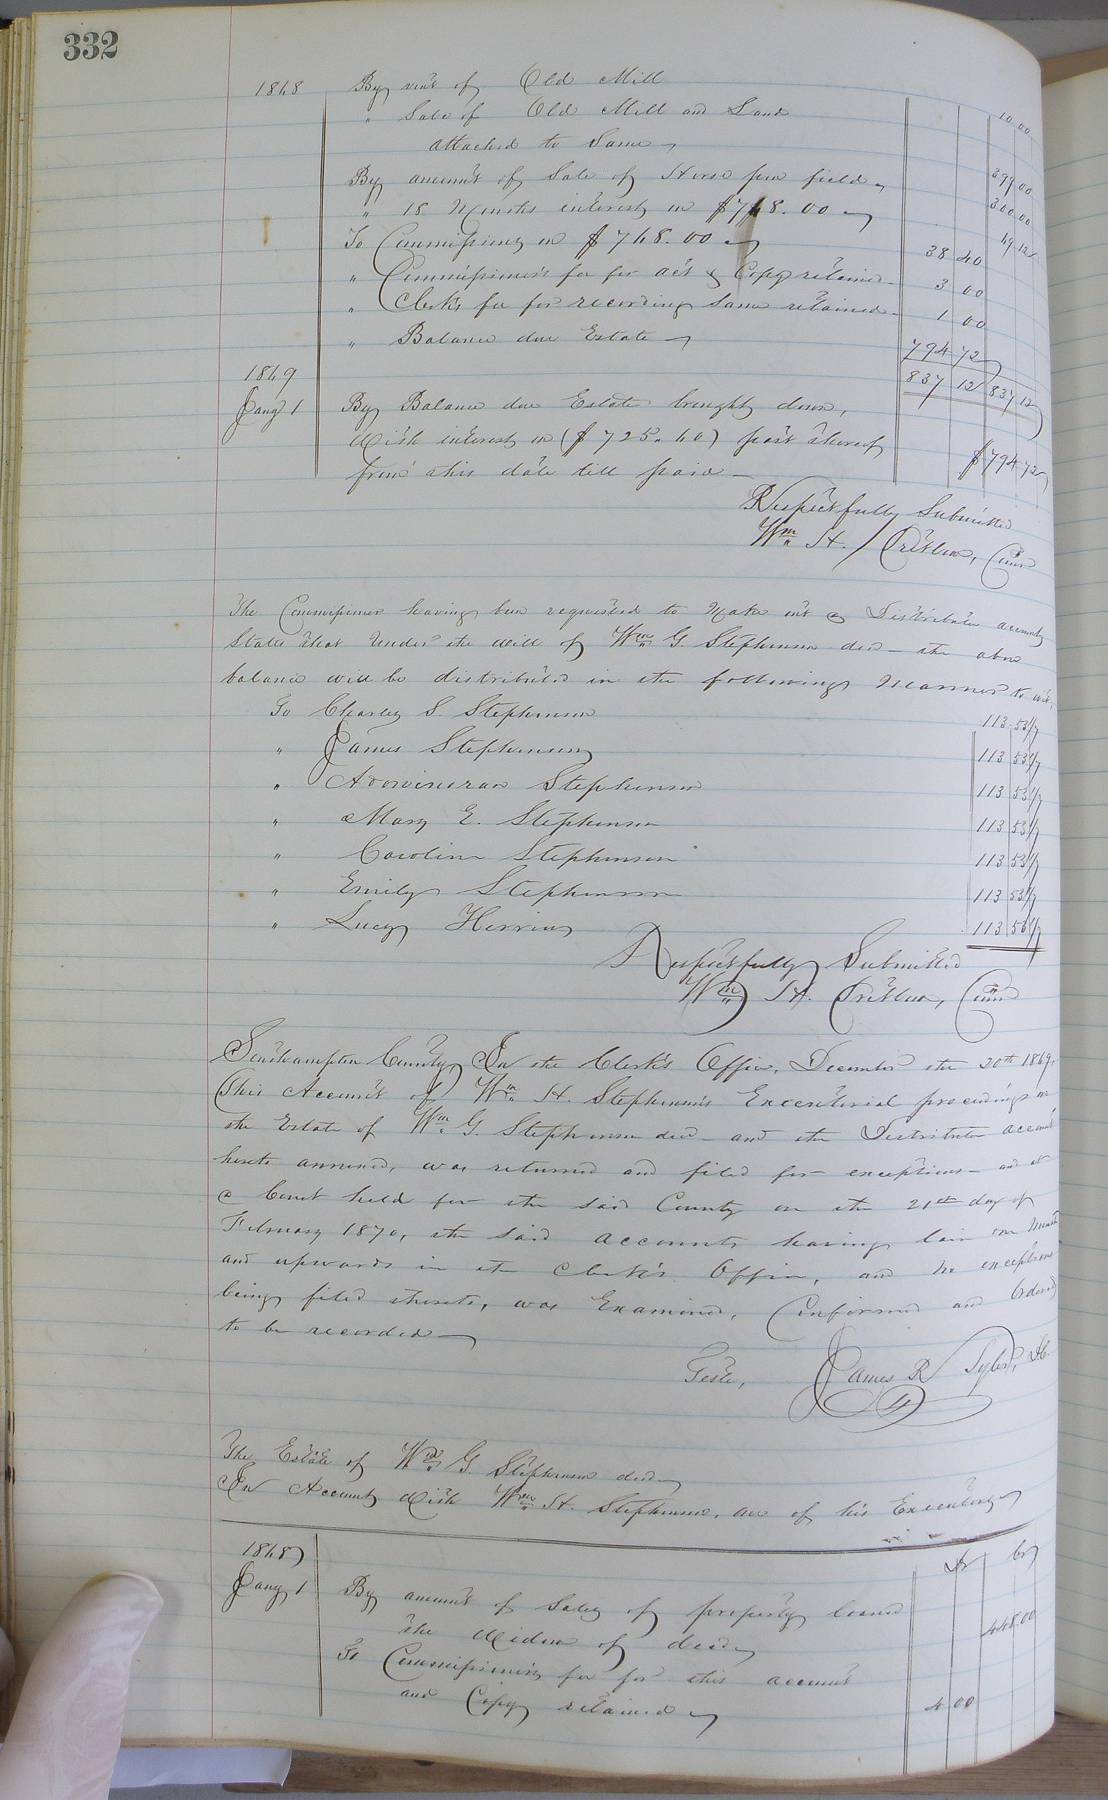 332
1868 By rent of Old Mill 10 00
" Sale of Old Mill and Land
attached to Same 399 00
By amount of Sale of Horse pen field 300 00
" 18 Months interest on $768.00 69 12
To Commissions on $768.00 38 40
" Commissioner's fee for act & Copy retained 3 00
" Clerk's fee for recording same retained 1 00
" Balance due Estate 794 72
837 12 837 12
1869
Jany 1 By Balance due Estate brought down,
With interest on ($725.60) part thereof
from this date till paid $794 72
Respectfully Submitted
Wm H. Critlow, Comr
The Commissioner having been requested to Make out a Distributive account
State that Under the Will of Wm G. Stephenson decd the above
balance will be distributed in the following Manner to wit,
To Charley S. Stephenson 113 53 1/7
" James Stephenson 113 53 1/7
" Stephenson 113 53 1/7
" Mary E. Stephenson 113 53 1/7
" Caroline Stephenson 113 53 1/7
" Emily Stephenson 113 53 1/7
" Lucy Herring 113 53 1/7
Respectfully Submitted
Wm H. Critlow, Comr
Southampton County, In the Clerk's Office, December the 20th 1869,
This Account of Wm H. Stephenson's Executorial proceedings on
the Estate of Wm G. Stephenson decd and the Distributive account
hereto annexed, was returned and filed for exceptions and at
a Court held for the said County on the 21st day of
February 1870, the said accounts having lain one Month
and upwards in the Clerk's Office, and no exceptions
being filed thereto, was Examined, Confirmed and Ordered
to be recorded
Teste, James R Tyler, D.C.
The Estate of Wm G. Stephenson decd
In Account With Wm H. Stephenson, one of his Executors
Dr Cr
1868
Jany 1 By amount of Sales of property loaned
the Widow of decd 448.00
To Commissioner's fee for this account
and Copy retained 4 00